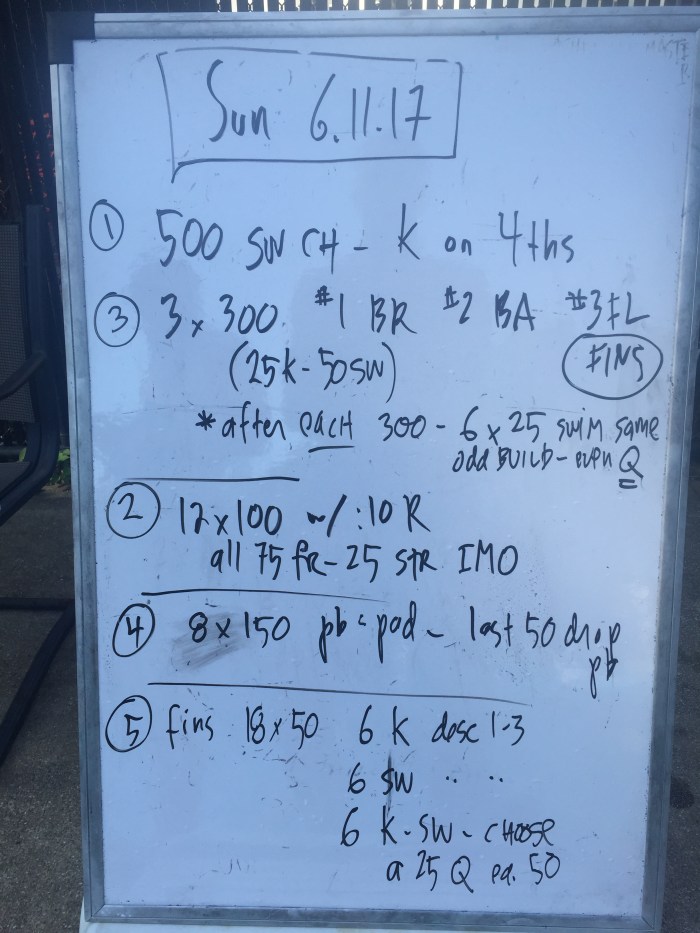 Sun 6.11.17
① 500 SW CH - K on 4ths
③ 3 x 300 #1 BR #2 BA #3 FL
(25K - 50 SW) FINS
* after each 300 - 6 x 25 swim same
odd BUILD - even Q
② 12 x 100 w/ :10 R
all 75 fr - 25 str IMO
④ 8 x 150 pb & pad - last 50 drop
pb
⑤ fins 18 x 50 6 K desc 1-3
6 SW " "
6 K-SW - CHOOSE
a 25 Q ea. 50